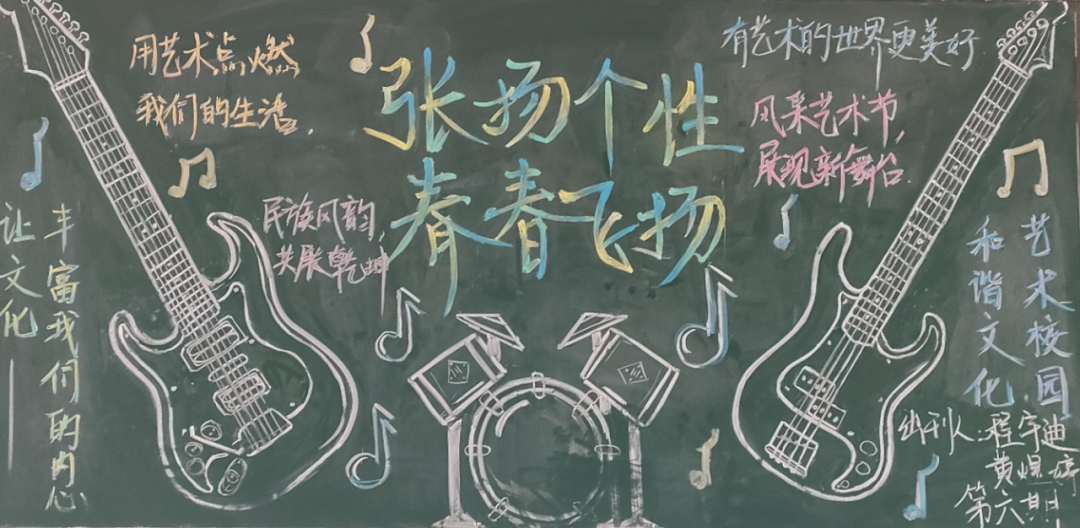 用艺术点燃
我们的生活.
张扬个性
青春飞扬
有艺术的世界更美好
风采艺术节,
展现新舞台.
民族风韵,
共展乾坤
让文化——
丰富我们的内心
艺术校园
和谐文化
出刊人:程宇迪
黄煜
第六期